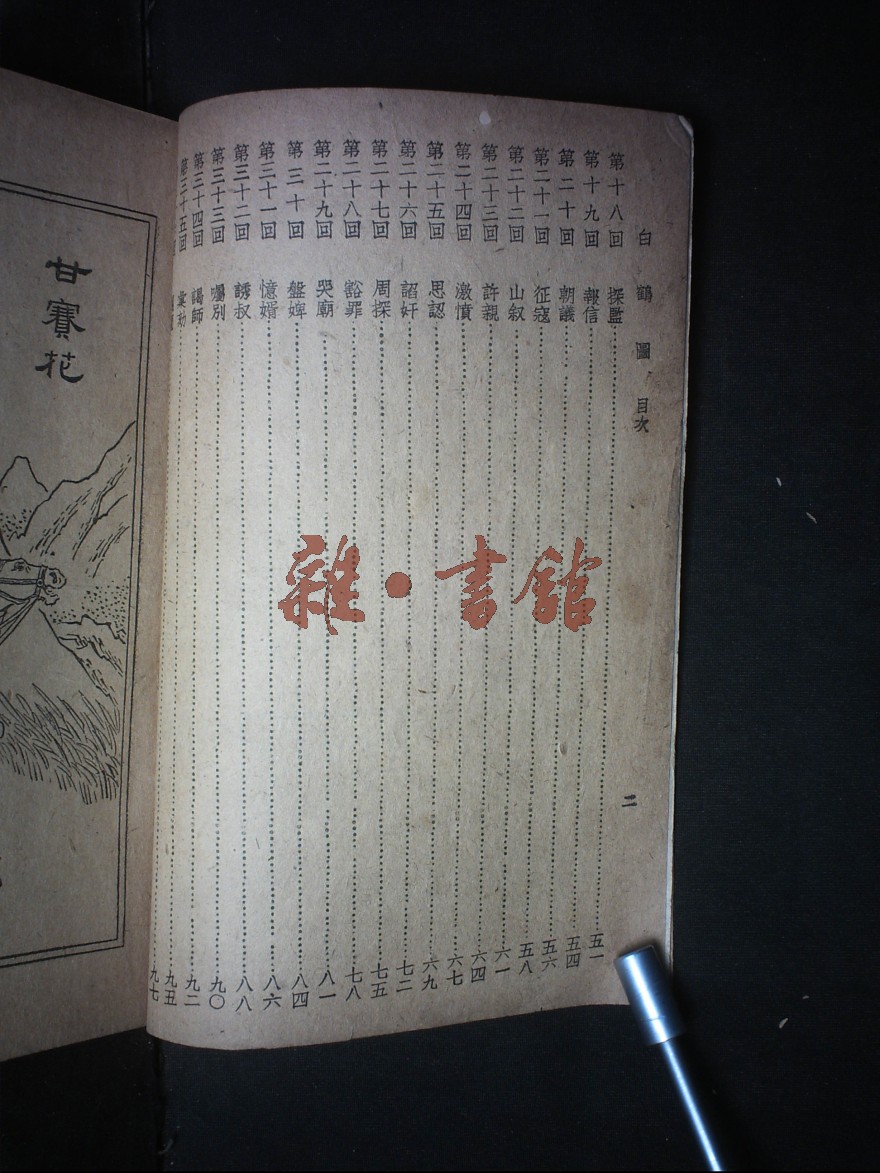 白鶴圖 目次 二
第十八回 探監 五一
第十九回 報信 五四
第二十回 朝議 五六
第二十一回 征寇 五八
第二十二回 山叙 六一
第二十三回 許親 六四
第二十四回 激憤 六七
第二十五回 思認 六九
第二十六回 詔奸 七二
第二十七回 周探 七五
第二十八回 豁罪 七八
第二十九回 哭廟 八一
第三十回 盤婢 八四
第三十一回 憶婿 八六
第三十二回 誘叔 八八
第三十三回 囑別 九〇
第三十四回 謁師 九二
第三十五回 劾 九五
九七
甘賽花
雜·書館